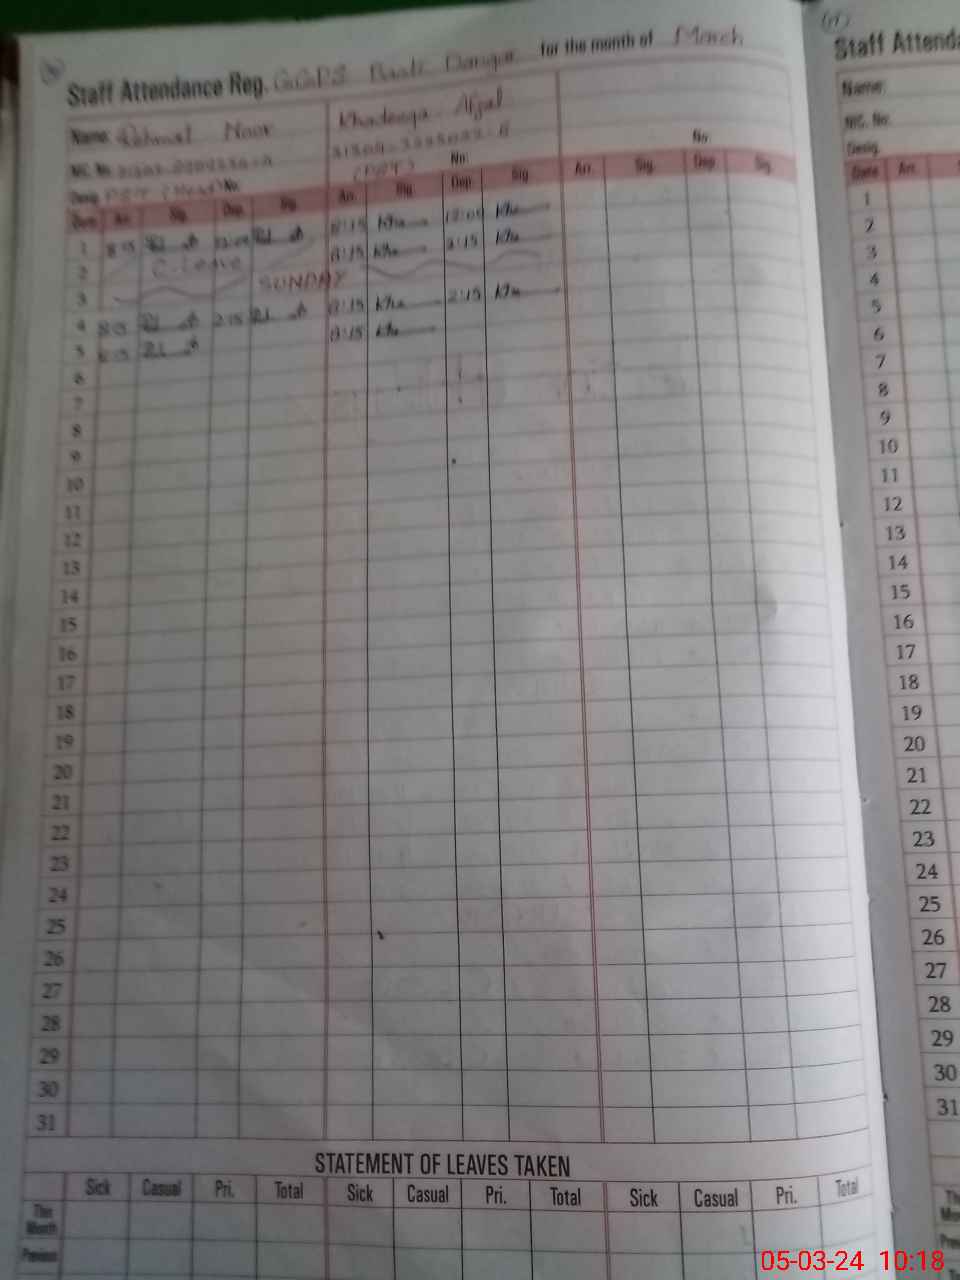 Staff Attendance Reg. GGPS Basti Dangar for the month of March
Name: Rehmat Noor Khadeeja Afzal
NIC. No.
Desig. PST (Head) No: (PST) No: No
Date Arr. Sig. Dep. Sig. Arr. Sig. Dep. Sig. Arr. Sig. Dep. Sig.
1 8:15 8:15 Kha 12:00 Kha
2 C. Leave 8:15 Kha 2:15 Kha
3 SUNDAY
4 8:15 2:15 8:15 Kha 2:15 Kha
5 8:15 8:15 Kha
6
7
8
9
10
11
12
13
14
15
16
17
18
19
20
21
22
23
24
25
26
27
28
29
30
31
STATEMENT OF LEAVES TAKEN
Sick Casual Pri. Total Sick Casual Pri. Total Sick Casual Pri. Total
This Month
Previous
Staff Attenda
Name:
NIC. No.
Desig.
Date Arr.
1
2
3
4
5
6
7
8
9
10
11
12
13
14
15
16
17
18
19
20
21
22
23
24
25
26
27
28
29
30
31
05-03-24 10:18